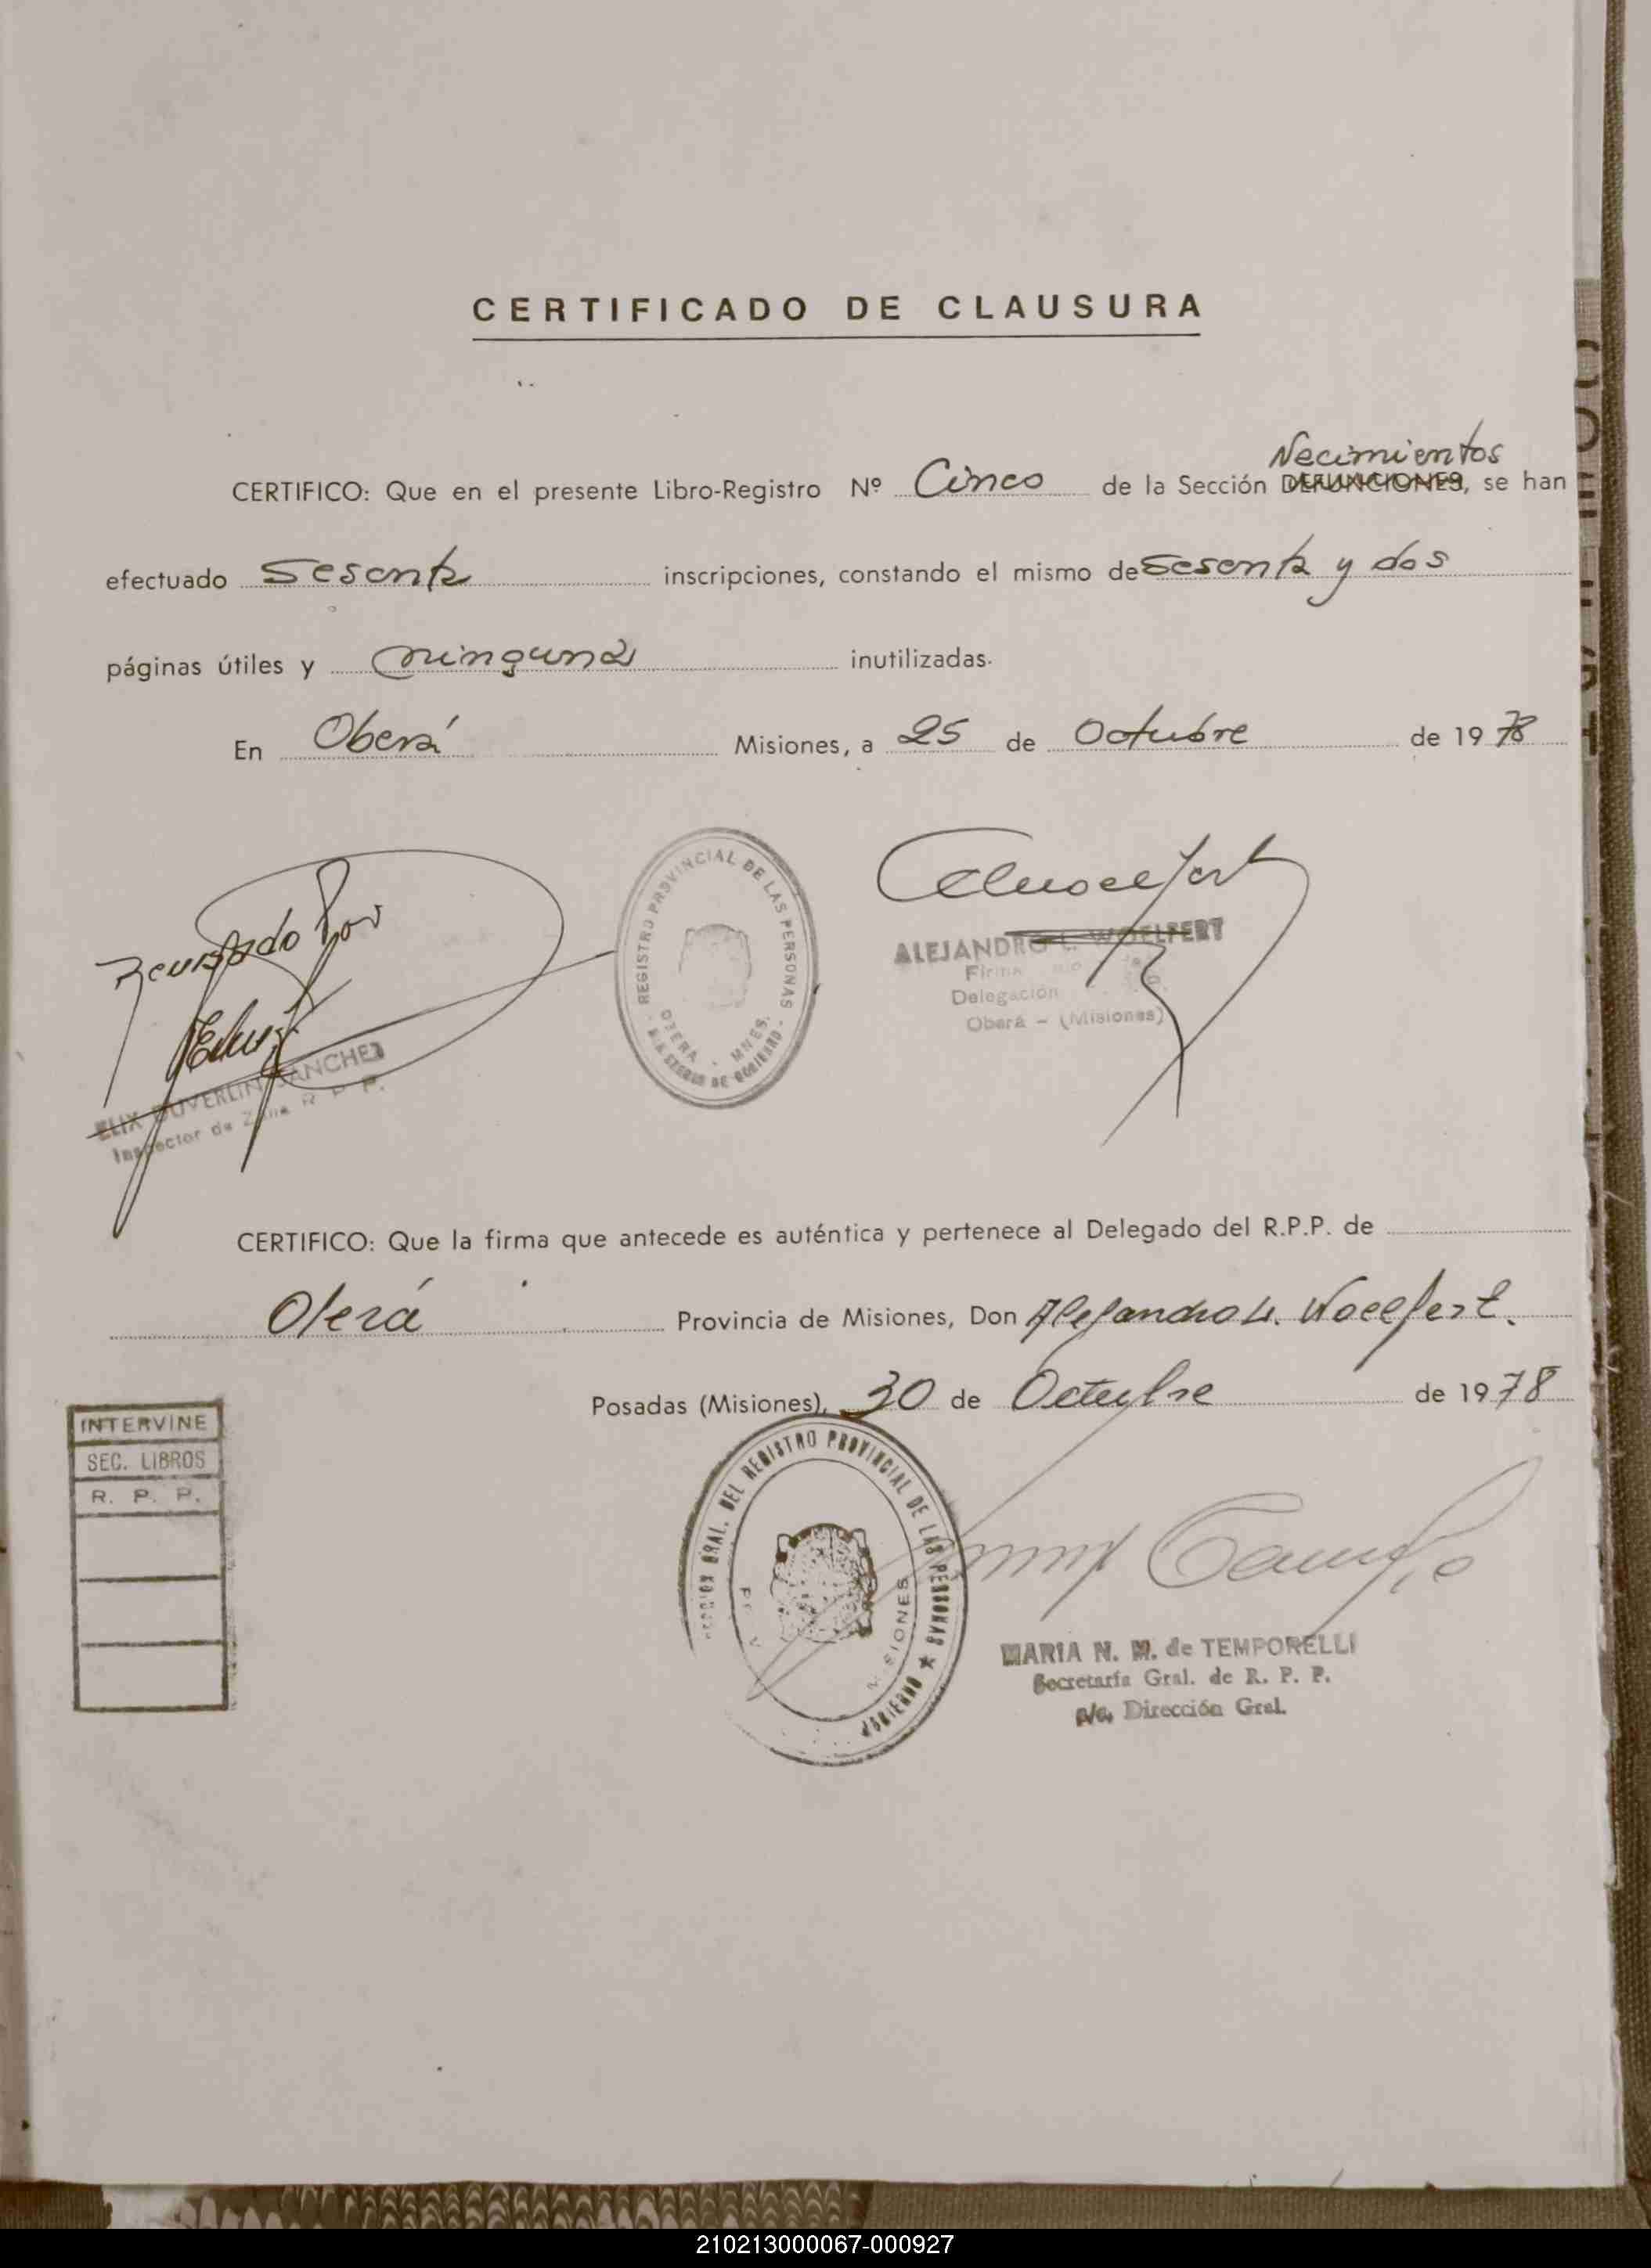 CERTIFICADO DE CLAUSURA
Nacimientos
CERTIFICO: Que en el presente Libro-Registro Nº Cinco de la Sección DEFUNCIONES, se han
efectuado Sesenta inscripciones, constando el mismo de Sesenta y dos
páginas útiles y ninguna inutilizadas.
En Oberá Misiones, a 25 de Octubre de 1978
Revisado Por
REGISTRO PROVINCIAL DE LAS PERSONAS
OBERA - MNES.
DE GOBIERNO
ALEJANDRO L. WOELFERT
Firma
Delegación
Oberá - (Misiones)
ELIX DUVERLIN SANCHEZ
Inspector de Zona R. P. P.
CERTIFICO: Que la firma que antecede es auténtica y pertenece al Delegado del R.P.P. de
Oberá Provincia de Misiones, Don Alejandro L. Woelfert.
Posadas (Misiones), 30 de Octubre de 1978
INTERVINE
SEC. LIBROS
R. P. P.
GRAL. DEL REGISTRO PROVINCIAL DE LAS PERSONAS ★
GOBIERNO
MISIONES
MARIA N. M. de TEMPORELLI
Secretaría Gral. de R. P. P.
a/c. Dirección Gral.
210213000067-000927